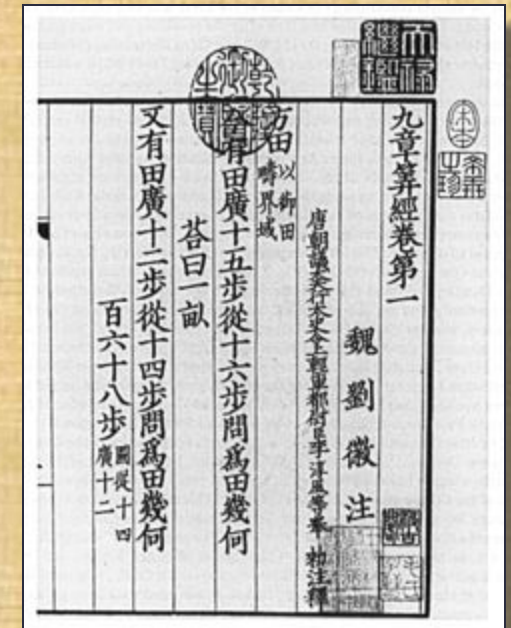 九章筭經卷第一
魏劉徽注
唐朝議大夫行太史令上輕車都尉臣李淳風等奉勑注釋
方田以御田疇界域
今有田廣十五步從十六步問爲田幾何
荅曰一畝
又有田廣十二步從十四步問爲田幾何
百六十八步圖從十四廣十二
乾隆御覽之寶
天祿繼鑑